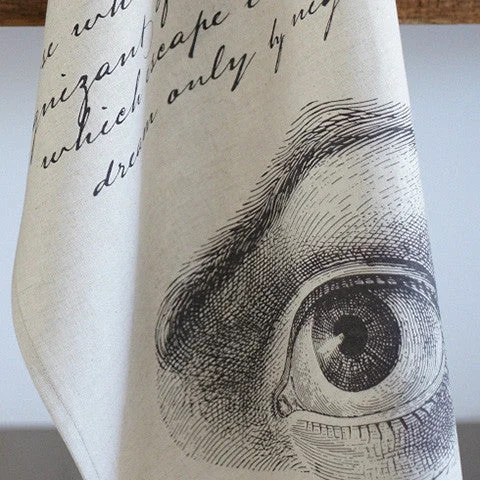 e wh
gnizant
which escape
dream only by nig